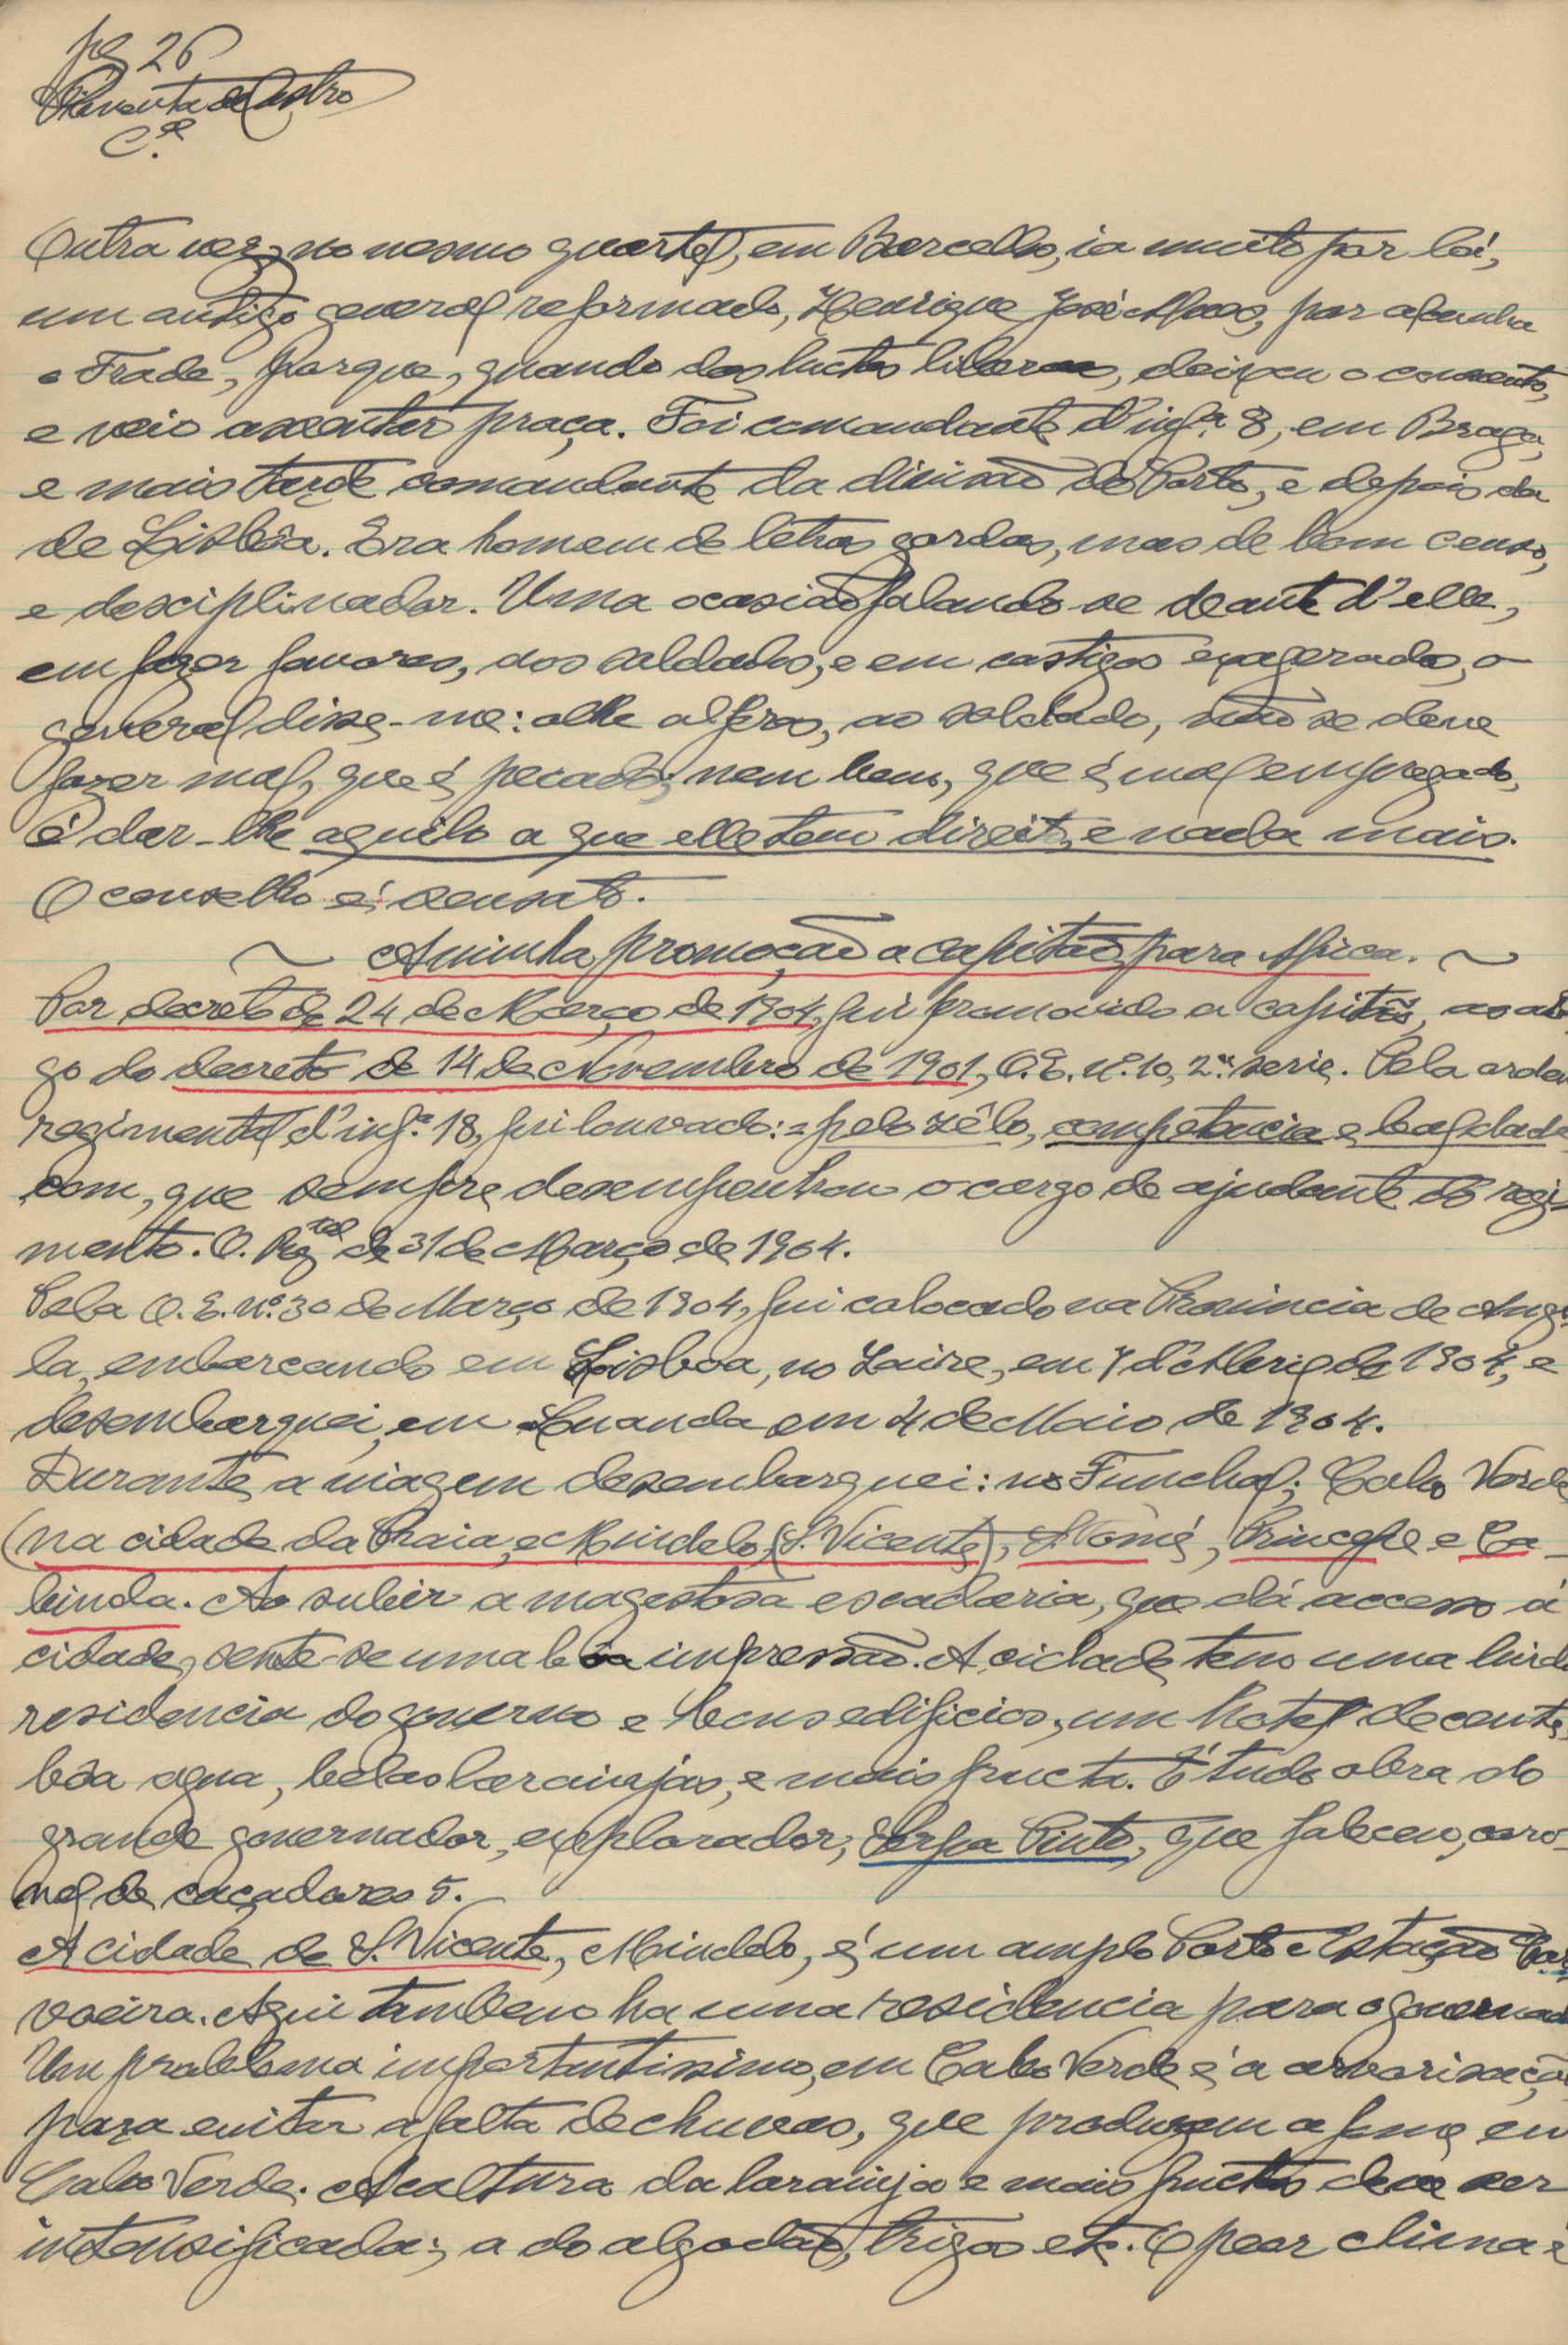 pg 26
Pimenta de Castro
C.el
Outra vez, no mesmo quartel, em Barcellos, ia muito por lá,
um antigo general reformado, Henrique José Alves, por alcunha
o Frade, porque, quando das luctas liberaes, deixou o convento,
e veio assentar praça. Foi comandante d'infª. 8, em Braga,
e mais tarde comandante da divisão do Porto, e depois da
de Lisbôa. Era homem de letras gordas, mas de bom censo,
e desciplinador. Uma ocasião falando-se deante d'elle,
em fazer favores, aos soldados, e em castigos exagerados, o
general disse-me: olhe alferes, ao soldado, não se deve
fazer mal, que é pecado; nem bem, que é mal empregado,
é dar-lhe aquilo a que elle tem direito, e nada mais.
O conselho é sensato.
~ A minha promoção a capitão, para Africa. ~
Por decreto de 24 de Março de 1904, fui promovido a capitão, ao abri
go do decreto de 14 de Novembro de 1901, O.E. nº. 10, 2ª. serie. Pela ordem
regimental d'infª. 18, fui louvado: = pelo zêlo, competencia e lealdade
com, que sempre desempenhou o cargo de ajudante do regi-
mento. O. Regtal de 31 de Março de 1904.
Pela O.E. nº. 30 de Março de 1904, fui colocado na Provincia de Ango
la, embarcando em Lisboa, no Zaire, em 7 d'Abril de 1904, e
desembarquei, em Luanda em 4 de Maio de 1904.
Durante, a viagem desembarquei: no Funchal; Cabo Verde
(na cidade da Praia, e Mindelo, (S. Vicente), S. Tomé, Principe e Ca-
binda. Ao subir a magestosa escadaria, que dá accesso á
cidade, sente-se uma bôa impressão. A cidade, tem uma linda
residencia do governo e bons edificios, um hotel decente,
bôa agua, belas laranjas, e mais fructa. É tudo obra do
grande governador, explorador, Serpa Pinto, que faleceu, coro-
nel de caçadores 5.
A cidade de S. Vicente, Mindelo, é um amplo Porto e Estação Car
voeira. Aqui tambem ha uma residencia para o governad
Um problema importantissimo, em Cabo Verde é a arvorisação
para evitar a falta de chuvas, que produzem a fome, em
Cabo Verde. A cultura da laranja e mais fructas deve ser
intensificada; a do algodão, trigos etc. O peor clima é